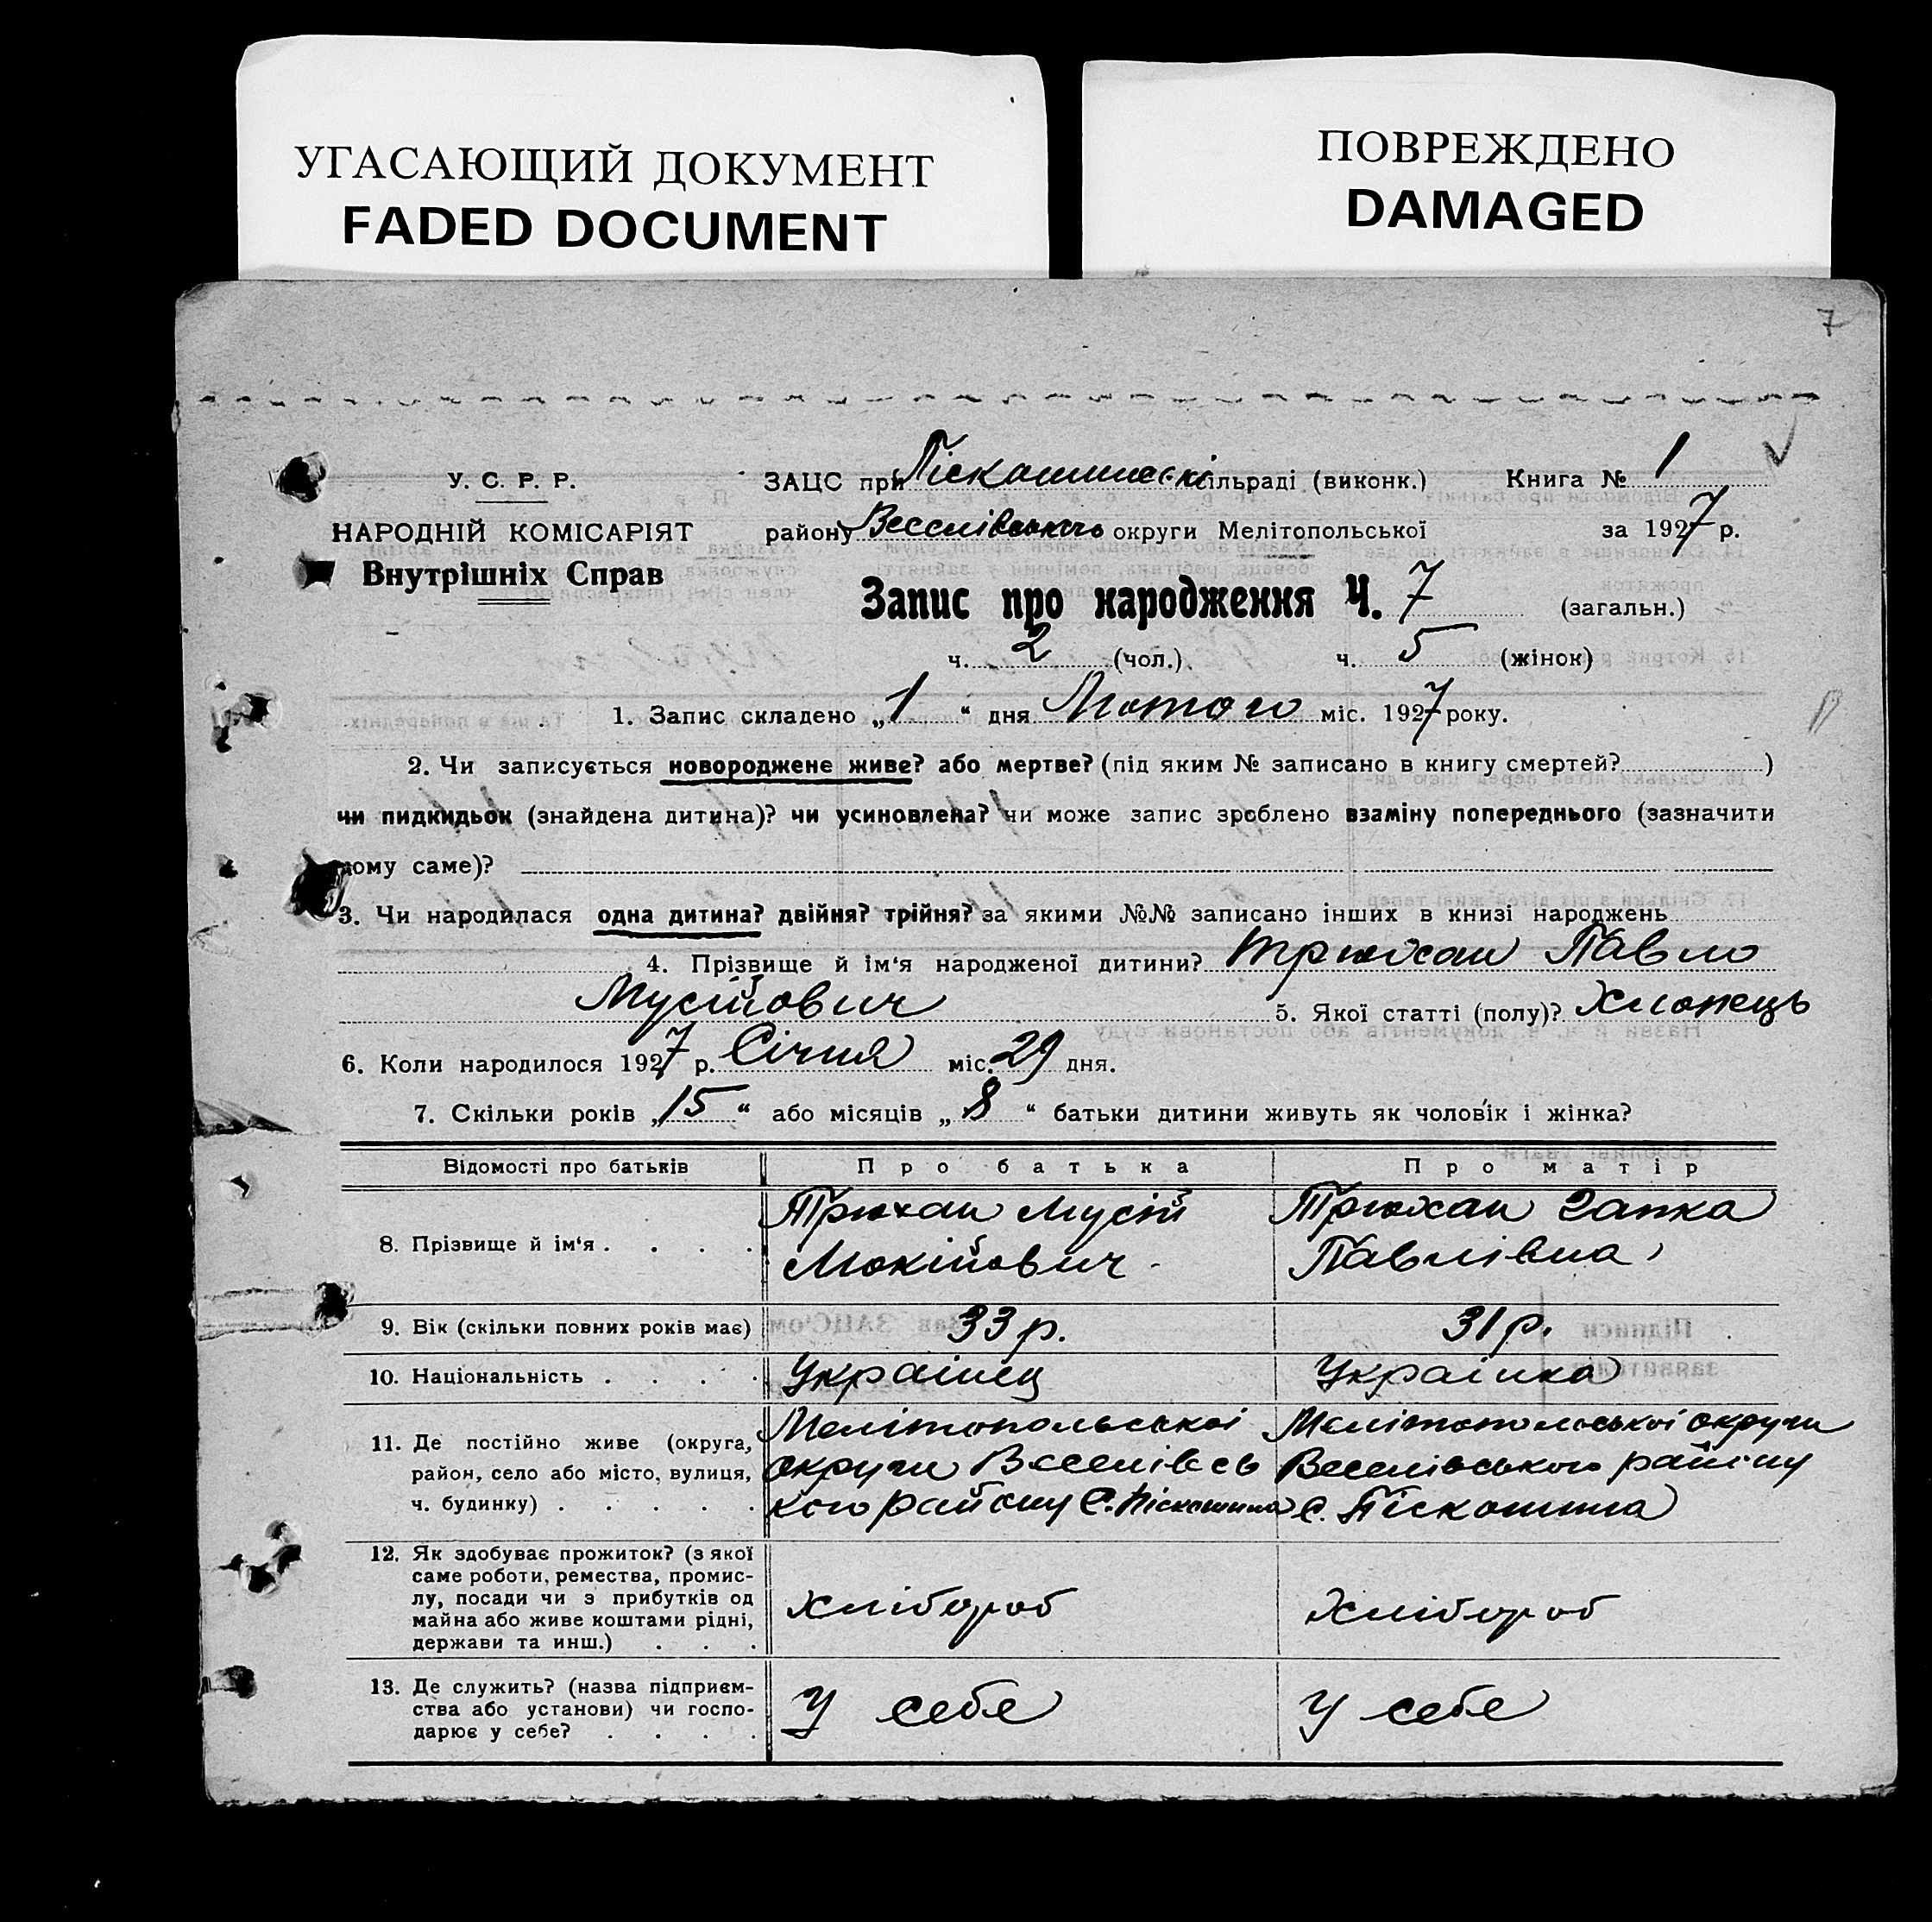 УГАСАЮЩИЙ ДОКУМЕНТ
FADED DOCUMENT
ПОВРЕЖДЕНО
DAMAGED
7
У. С. Р. Р.
НАРОДНІЙ КОМІСАРІЯТ
Внутрішніх Справ
ЗАЦС при Піскошинскі сільраді (виконк.) Книга № 1
району Веселівського округи Мелітопольської за 1927 р.
Запис про народження Ч. 7 (загальн.)
ч. 2 (чол.) ч. 5 (жінок)
1. Запис складено „1“ дня Лютого міс. 1927 року.
2. Чи записується новороджене живе? або мертве? (під яким № записано в книгу смертей? )
чи пидкидьок (знайдена дитина)? чи усиновлена? чи може запис зроблено взаміну попереднього (зазначити
чому саме)?
3. Чи народилася одна дитина? двійня? трійня? за якими №№ записано інших в книзі народжень
4. Прізвище й ім‘я народженої дитини? Трюхан Павло
Мусійович 5. Якої статті (полу)? Хлопець
6. Коли народилося 1927 р. Січня міс. 29 дня.
7. Скільки років „15“ або місяців „8“ батьки дитини живуть як чоловік і жінка?
Відомості про батьків Про батька Про матір
8. Прізвище й ім‘я . . . . .
Трюхан Мусій
Мокійович
Трюхан Гапка
Павлівна
9. Вік (скільки повних років має) 33 р. 31 р.
10. Національність . . . . . Украінец Украінка
11. Де постійно живе (округа,
район, село або місто, вулиця,
ч. будинку) . . . . .
Мелітопольської
округи Веселівсь
кого району с. Піскошина
Мелітопольської округи
Веселівського району
с. Піскошина
12. Як здобуває прожиток? (з якої
саме роботи, ремества, промис-
лу, посади чи з прибутків од
майна або живе коштами рідні,
держави та инш.) . . .
Хлібороб
Хлібороб
13. Де служить? (назва підприєм-
ства або установи) чи госпо-
дарює у себе? . . . .
У себе
У себе